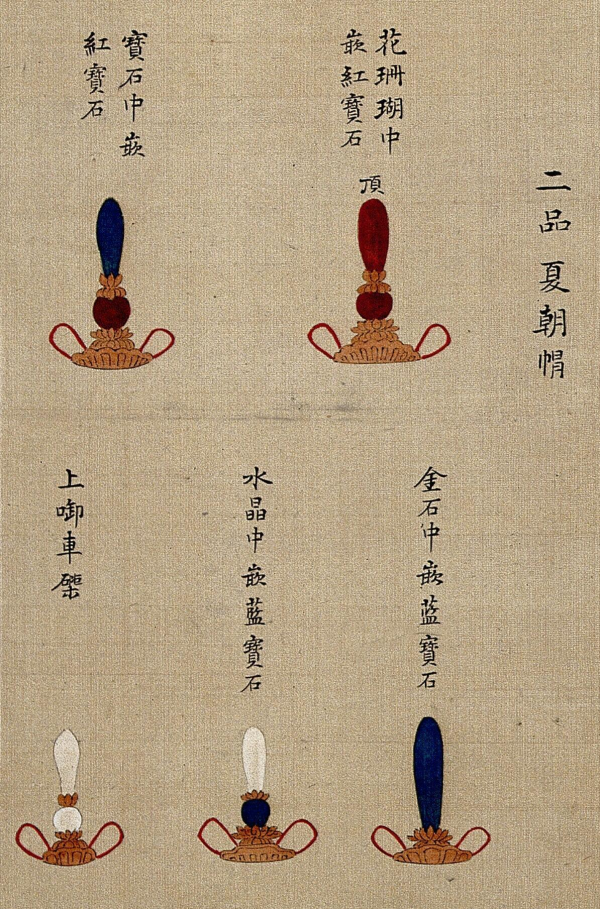 二品夏朝帽
花珊瑚中
嵌紅寶石
頂
寶石中嵌
紅寶石
金石中嵌藍寶石
水晶中嵌藍寶石
上啣車磲